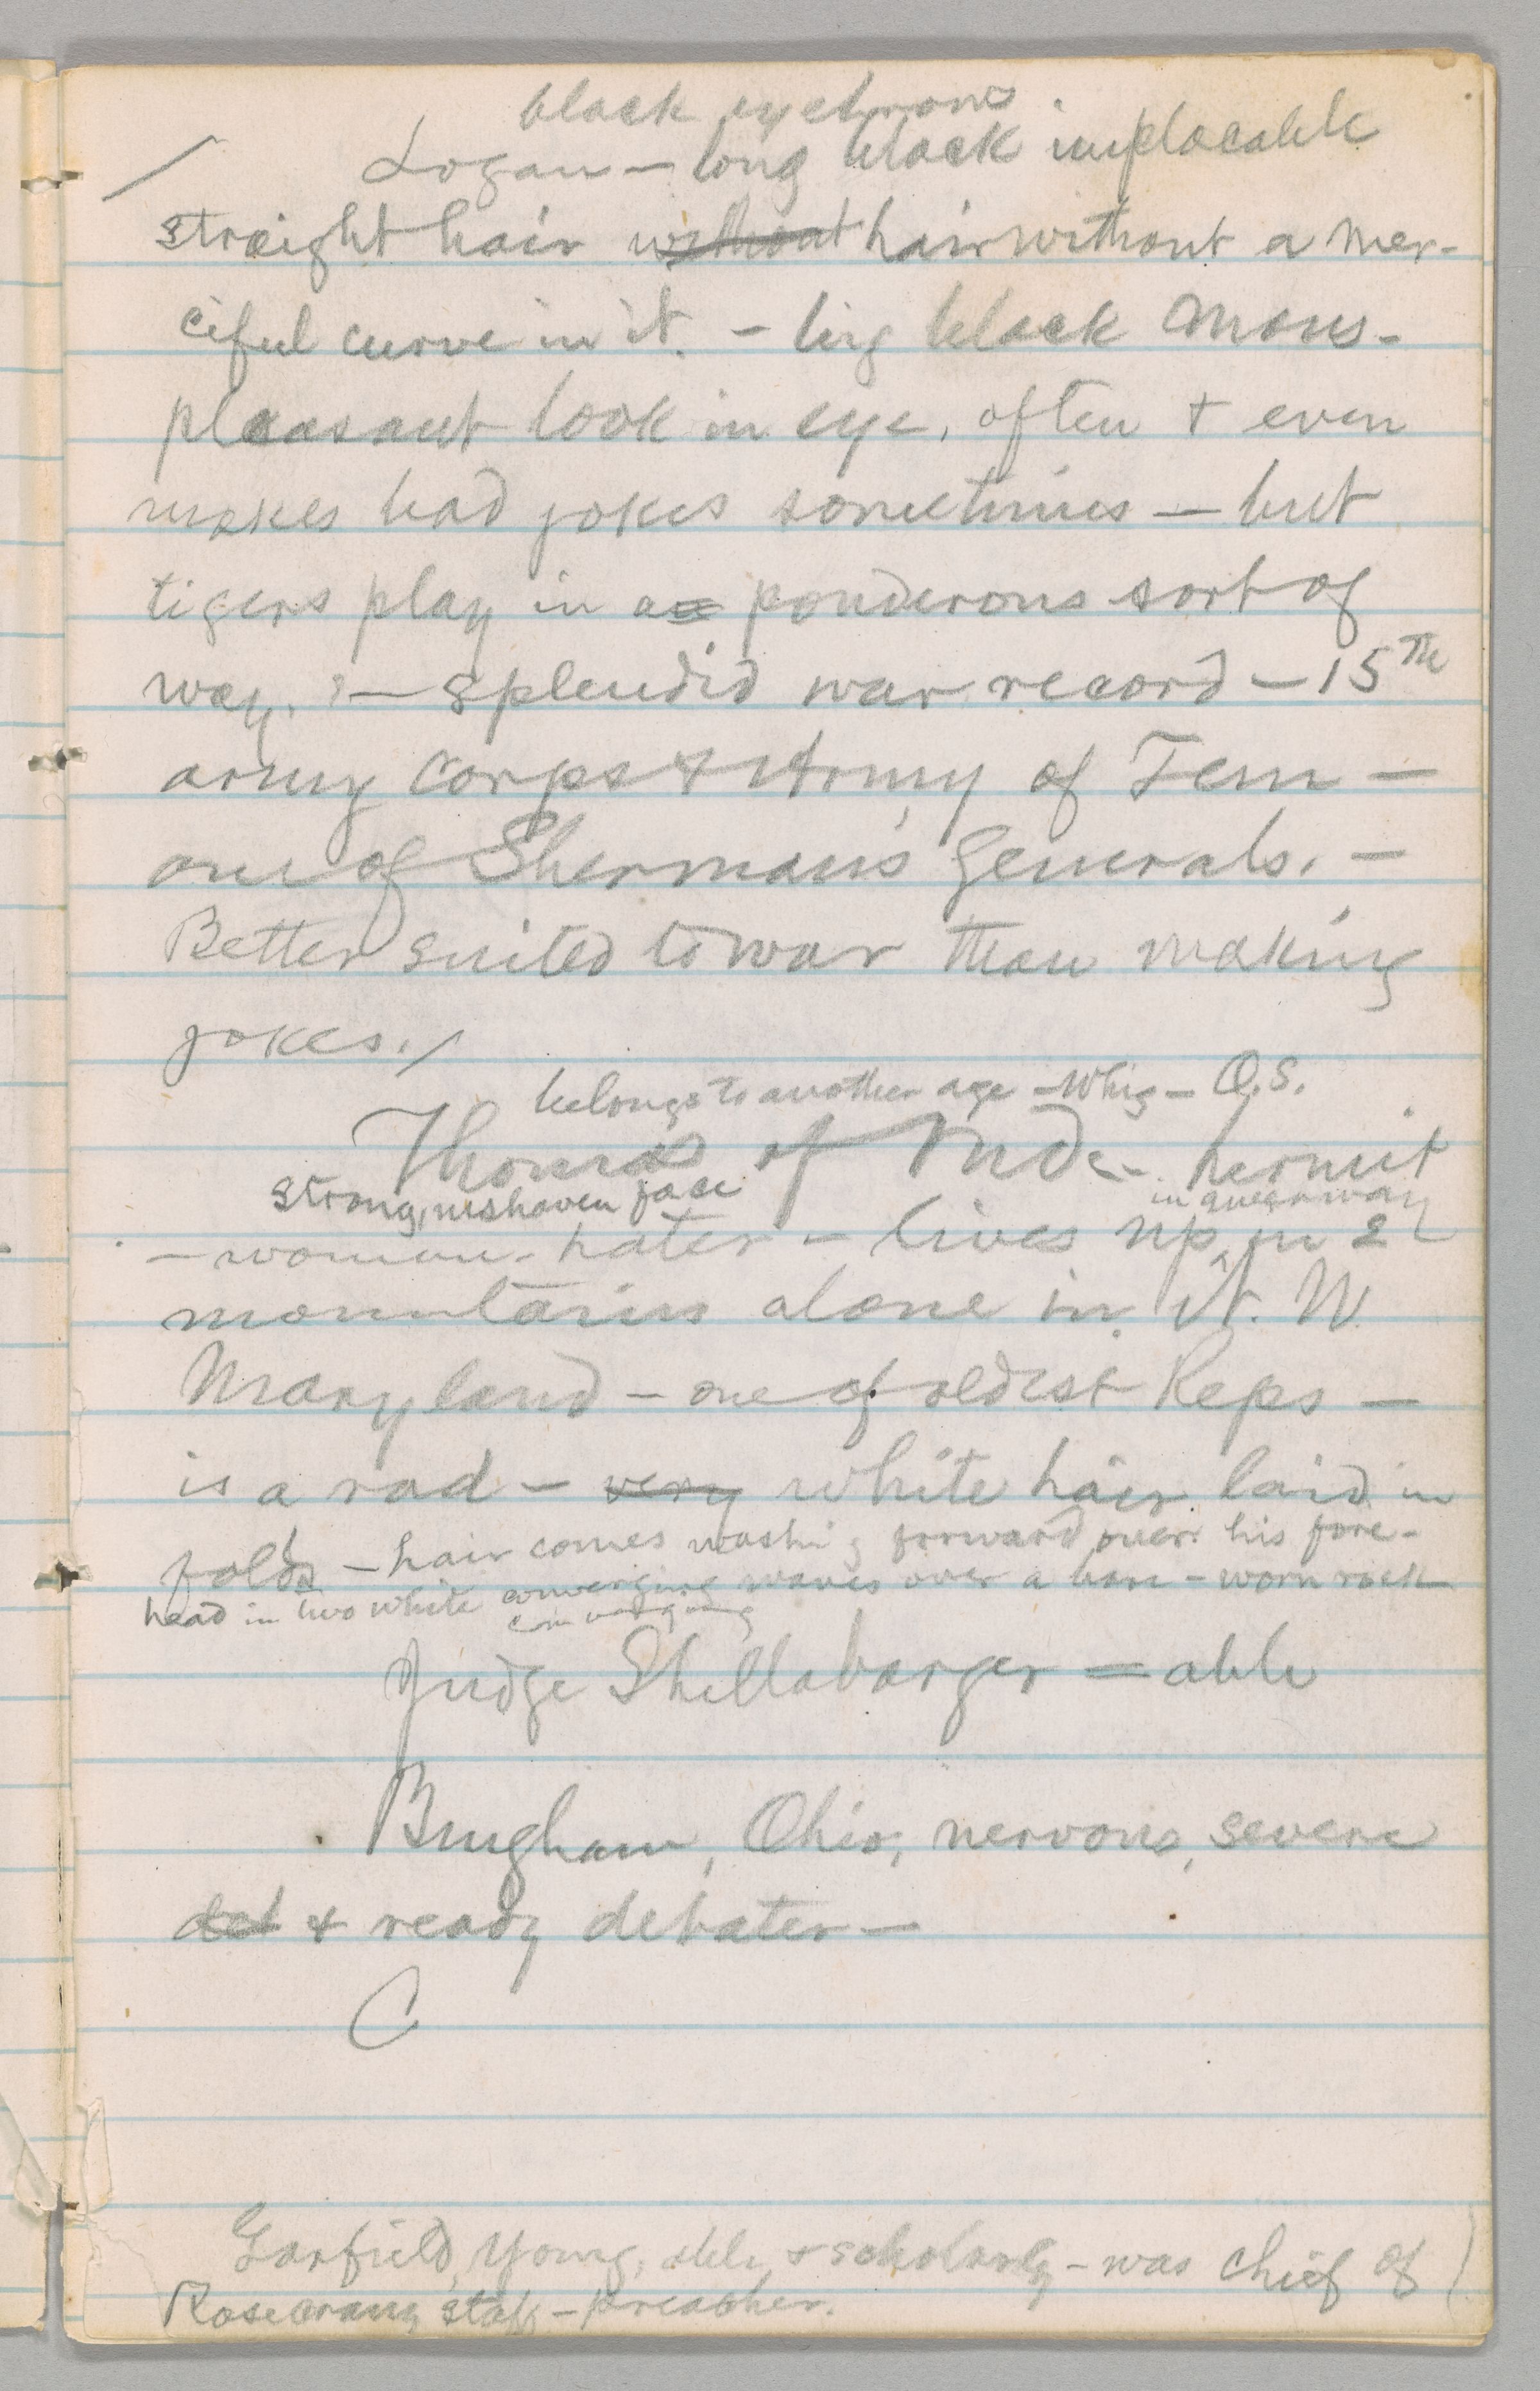 black eyebrows.
Logan — long black implacable
straight hair without hair without a mer-
ciful curve in it. — big black mous-
pleasant look in eye, often & even
makes bad jokes sometimes — but
tigers play in a ponderous sort of
way. — splendid war record — 15th
army corps & Army of Tenn —
one of Sherman's Generals. —
Better suited to war than making
jokes. /
belongs to another age — Whig — O.S.
Thomas of Md. — hermit
strong, unshaven face
in queer way
— woman-hater — lives up in
mountains alone in it. W.
Maryland — one of oldest Reps —
is a rad — very white hair laid in
folds — hair comes washing forward over his fore-
head in two white converging waves over a bare-worn rock
converging
Judge Shellabarger — able
Bingham, Ohio, nervous, severe
det & ready debater —
C
Garfield, young, able & scholarly — was chief of
Rosecrans staff — preacher.